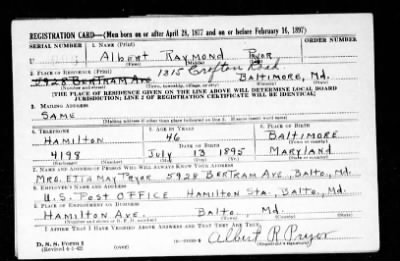 REGISTRATION CARD—(Men born on or after April 28, 1877 and on or before February 16, 1897)
SERIAL NUMBER 1. NAME (Print) ORDER NUMBER
U Albert Raymond Pryor
(First) (Middle) (Last)
2. PLACE OF RESIDENCE (Print) 1315 Crofton Road
5928 Bertram Ave Baltimore, Md.
(Number and street) (Town, township, village, or city) (County) (State)
[THE PLACE OF RESIDENCE GIVEN ON THE LINE ABOVE WILL DETERMINE LOCAL BOARD
JURISDICTION; LINE 2 OF REGISTRATION CERTIFICATE WILL BE IDENTICAL]
3. MAILING ADDRESS
Same
(Mailing address if other than place indicated on line 2. If same insert word same)
4. TELEPHONE 5. AGE IN YEARS 6. PLACE OF BIRTH
Hamilton 46 Baltimore
DATE OF BIRTH (Town or county)
4198 July 13 1895 Maryland
(Exchange) (Number) (Mo.) (Day) (Yr.) (State or country)
7. NAME AND ADDRESS OF PERSON WHO WILL ALWAYS KNOW YOUR ADDRESS
Mrs. Etta May Pryor 5928 Bertram Ave., Balto., Md.
8. EMPLOYER'S NAME AND ADDRESS
U.S. Post Office Hamilton Sta., Balto., Md.
9. PLACE OF EMPLOYMENT OR BUSINESS
Hamilton Ave. Balto., Md.
(Number and street or R. F. D. number) (Town) (County) (State)
I AFFIRM THAT I HAVE VERIFIED ABOVE ANSWERS AND THAT THEY ARE TRUE.
D. S. S. Form 1
(Revised 4-1-42) (over)
Albert R. Pryor